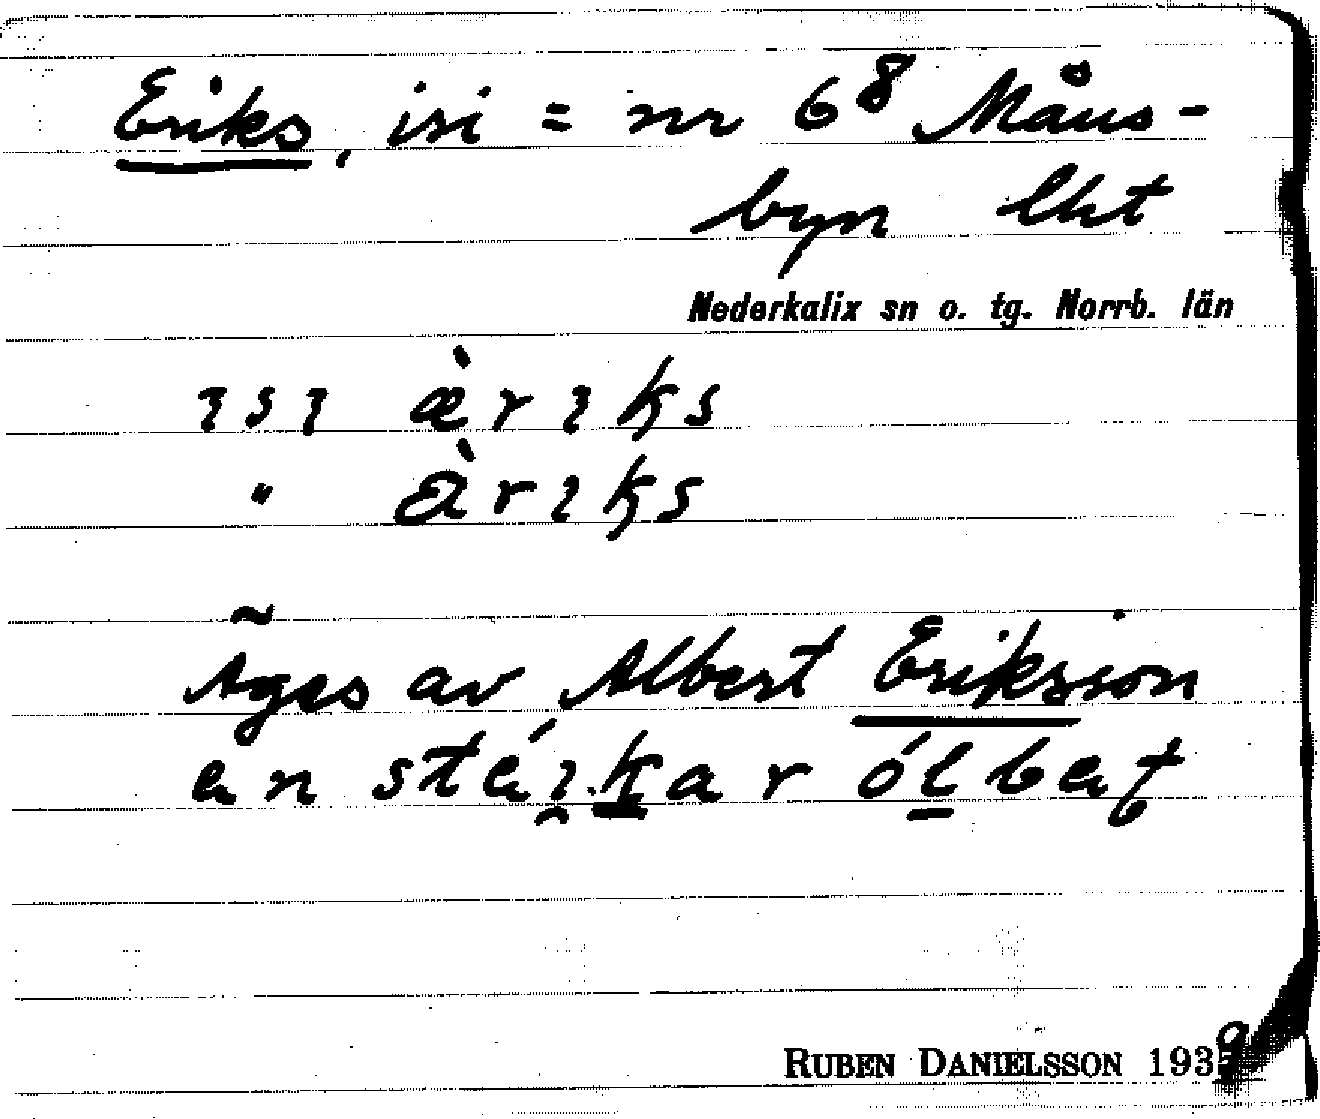 Eriks, isi = nr 6⁸ Måns-
byn lht
Nederkalix sn o. tg. Norrb. län
ɩsɩ æ̀rɩks
" àrɩks
Äges av Albert Eriksson
en stéɩkar ólbet
RUBEN DANIELSSON 1939